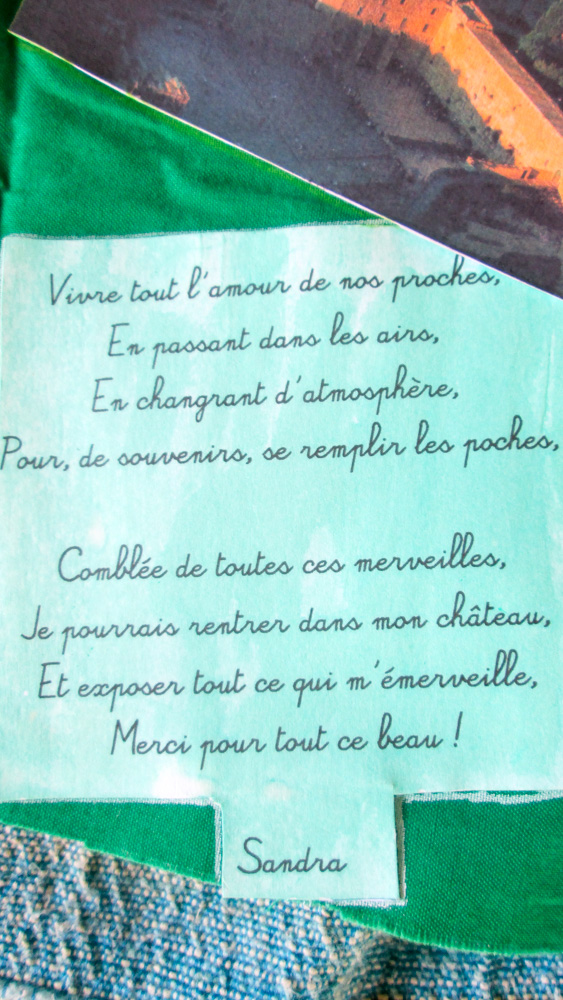 Vivre tout l'amour de nos proches,
En passant dans les airs,
En changrant d'atmosphère,
Pour, de souvenirs, se remplir les poches,
Comblée de toutes ces merveilles,
Je pourrais rentrer dans mon château,
Et exposer tout ce qui m'émerveille,
Merci pour tout ce beau !
Sandra